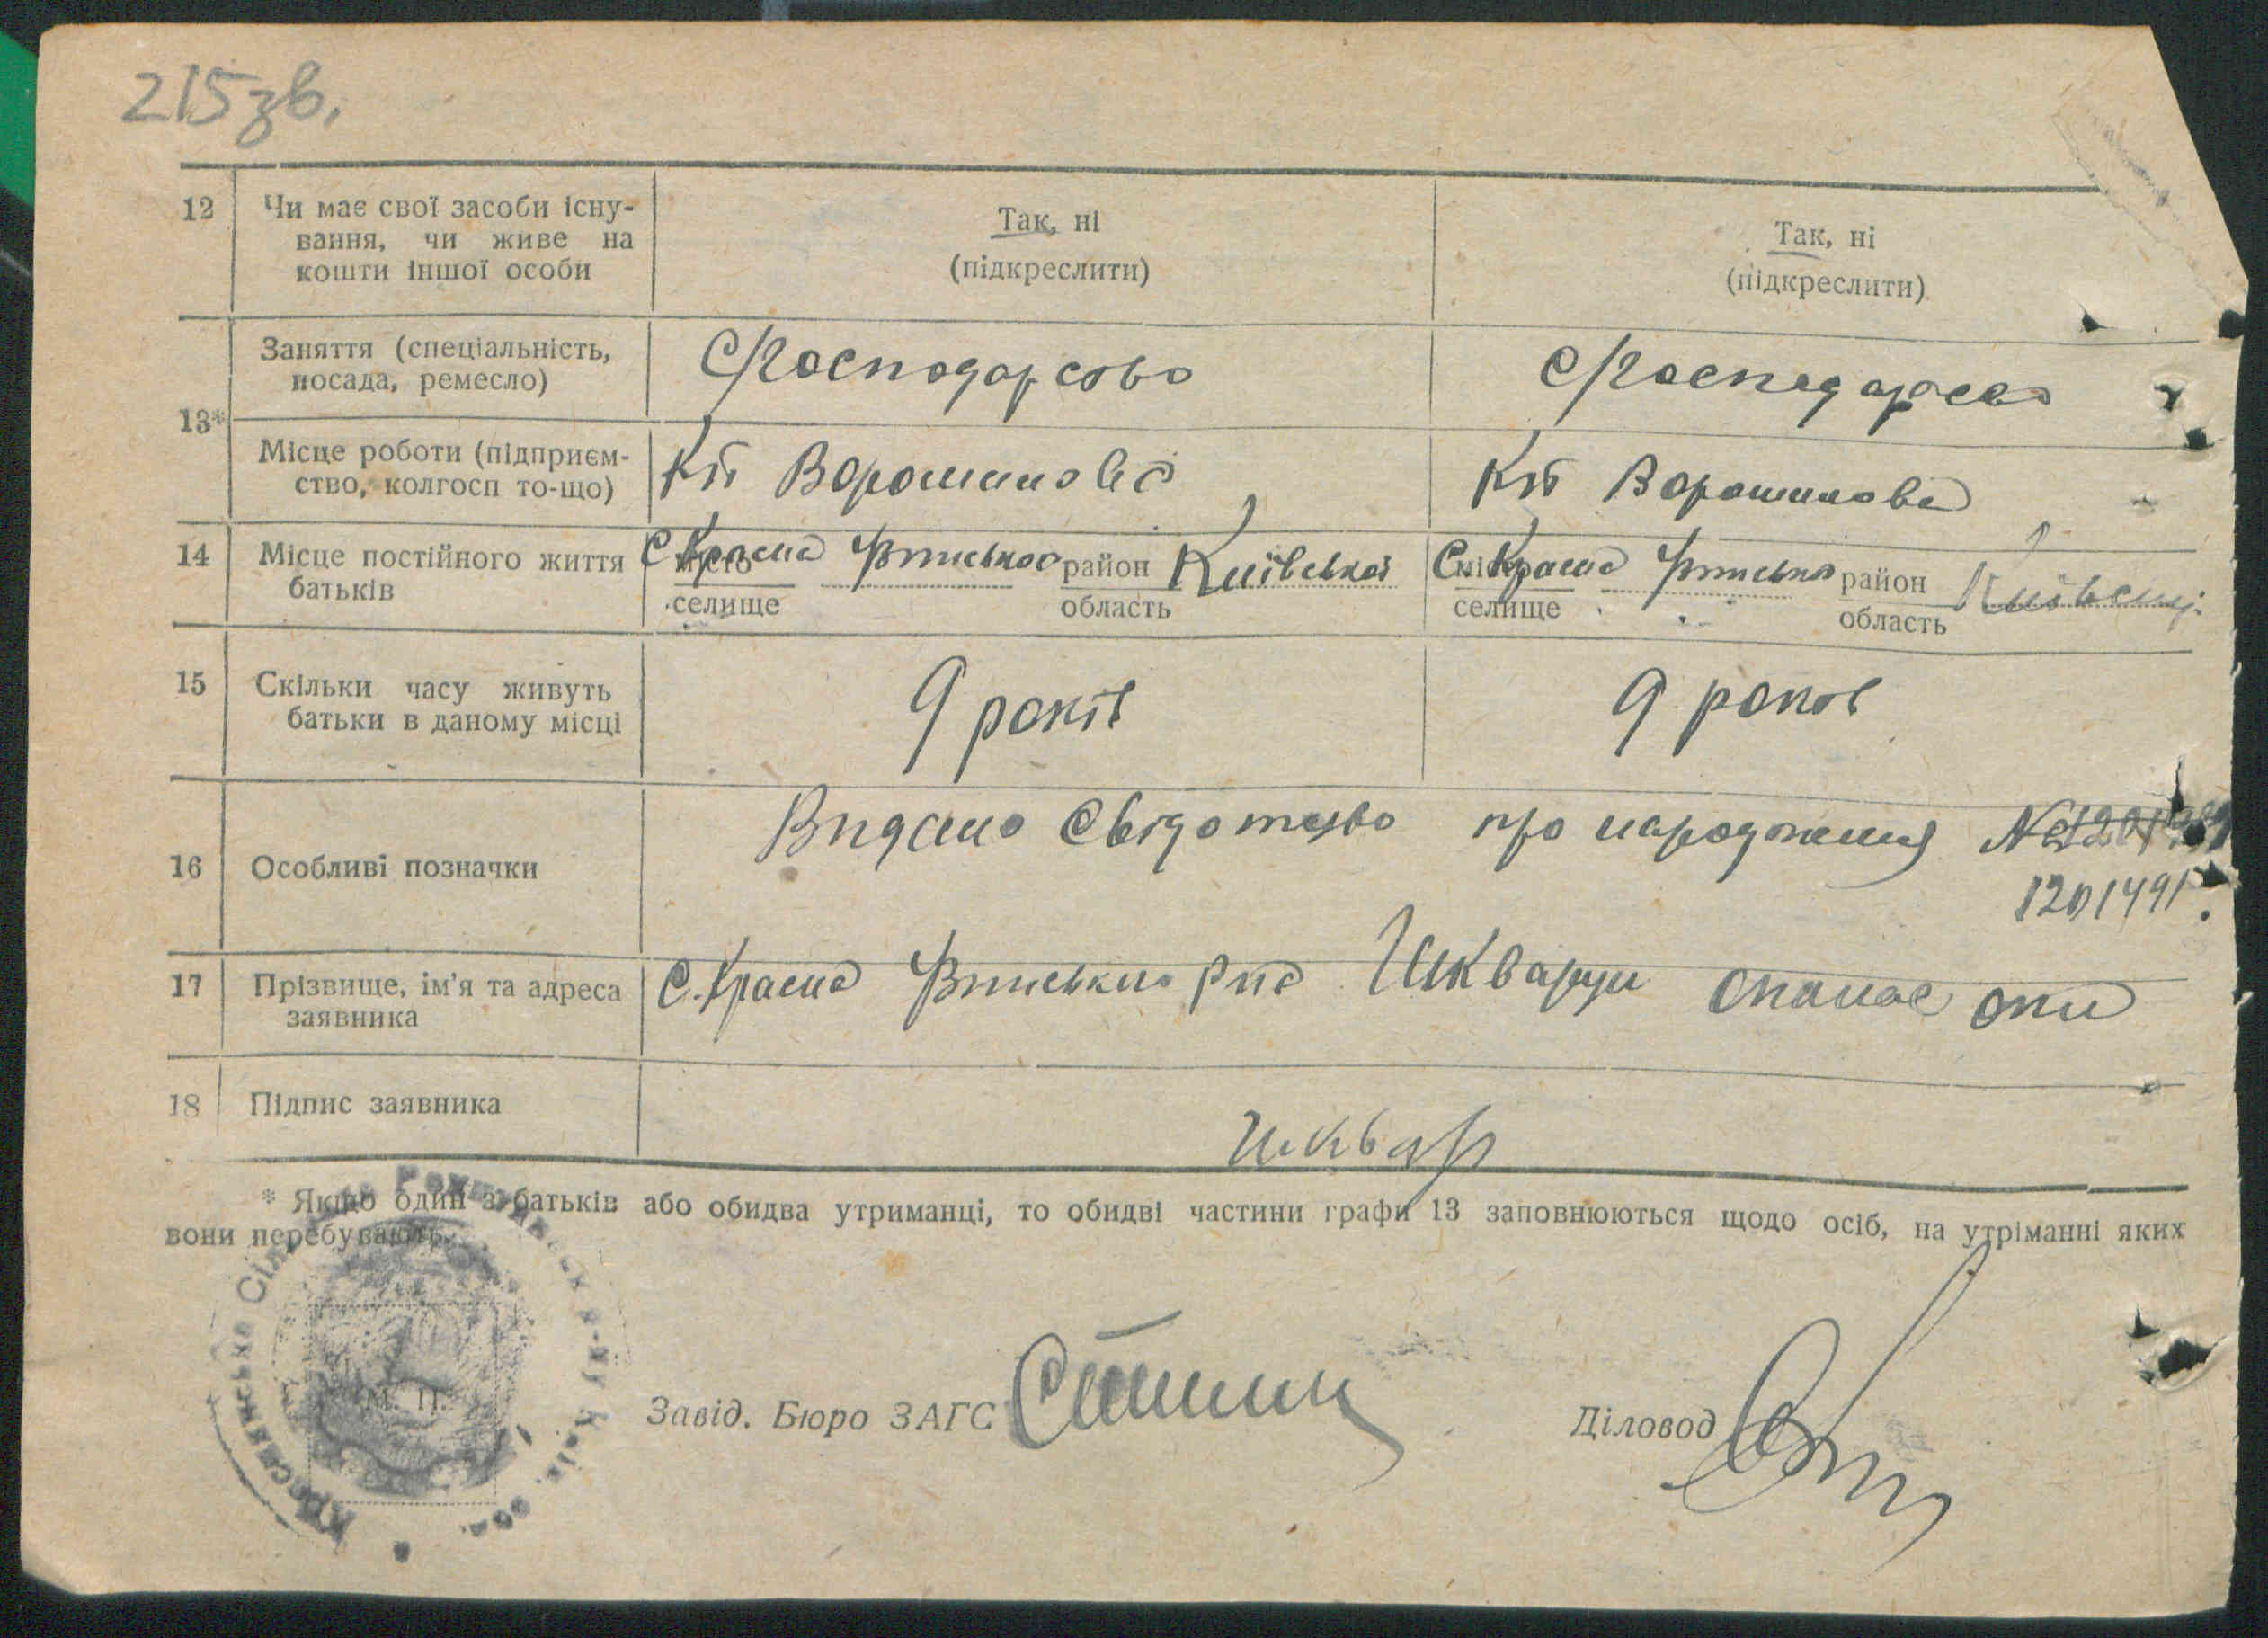 215зв.
12 Чи має свої засоби існу-
вання, чи живе на
кошти іншої особи
Так, ні
(підкреслити)
Так, ні
(підкреслити)
13*
Заняття (спеціальність,
посада, ремесло)
С/Господарство
С/Господарство
Місце роботи (підприєм-
ство, колгосп то-що)
Кп Ворошилова
Кп Ворошилова
14 Місце постійного життя
батьків
С Красна район Київської
селище область
С Красна район
селище область
15 Скільки часу живуть
батьки в даному місці
9 років
9 років
16 Особливі позначки
Видано Свідотство про народження №
1201491
17 Прізвище, ім'я та адреса
заявника
С. Красна Шкварун Опанас
18 Підпис заявника
Шквар
* Якщо один з батьків або обидва утриманці, то обидві частини графи 13 заповнюються щодо осіб, на утріманні яких
вони перебувають.
М. П.
Завід. Бюро ЗАГС
Діловод